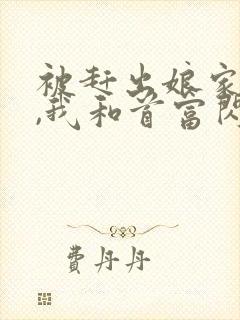 被赶出娘家
,我和首富闪
费丹丹